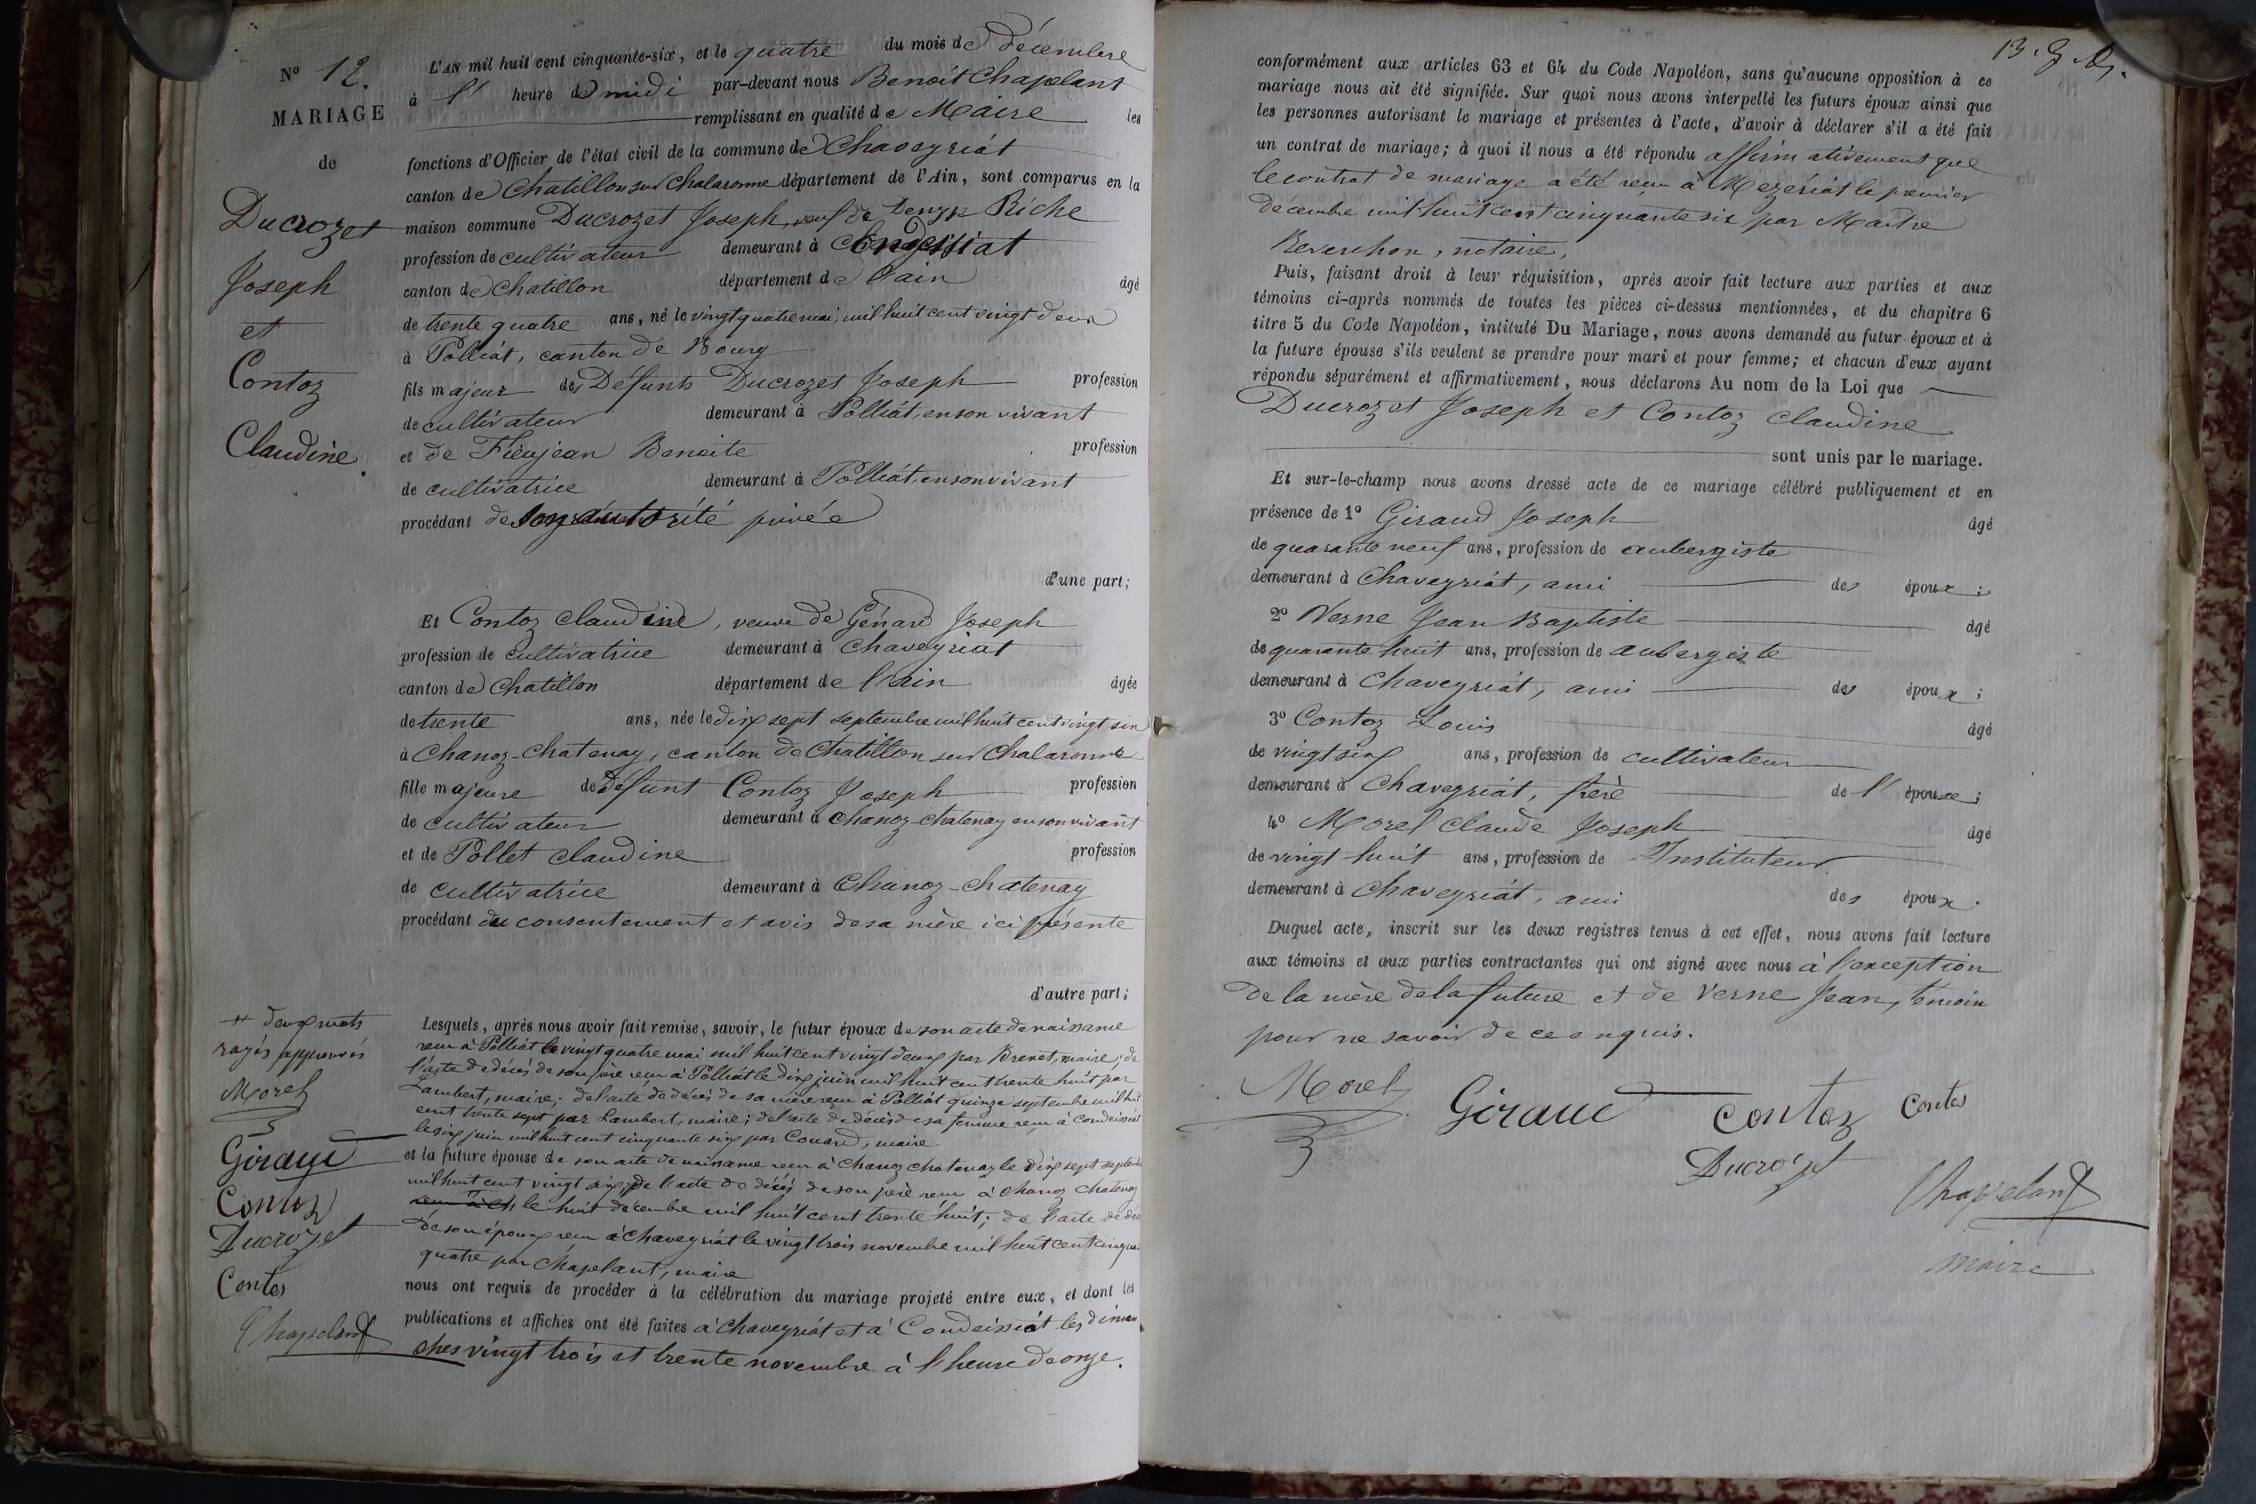 N° 12.
MARIAGE
de
Ducrozet
Joseph
et
Contoz
Claudine.
L'AN mil huit cent cinquante-six, et le quatre du mois de décembre
à l' heure de midi par-devant nous Benoit Chapelant
remplissant en qualité de Maire les
fonctions d'Officier de l'état civil de la commune de Chaveyriat
canton de Chatillon sur Chalaronne département de l'Ain, sont comparus en la
maison commune Ducrozet Joseph, veuf de Denyse Riche
profession de cultivateur demeurant à Condeissiat
canton de Chatillon département de l'ain âgé
de trente quatre ans, né le vingt quatre mai, mil huit cent vingt deux
à Polliat, canton de Bourg
fils majeur des Défunts Ducrozet Joseph profession
de cultivateur demeurant à Polliat, en son vivant
et de Fieujean Benoite profession
de cultivatrice demeurant à Polliat, en son vivant
procédant de son autorité privée
d'une part;
Et Contoz Claudine, veuve de Génard Joseph
profession de cultivatrice demeurant à Chaveyriat
canton de Chatillon département de l'ain âgée
de trente ans, née le dix sept septembre mil huit cent vingt six
à Chanoz-Chatenay, canton de Chatillon sur Chalaronne
fille majeure de Défunt Contoz Joseph profession
de cultivateur demeurant à Chanoz-Chatenay en son vivant
et de Pollet Claudine profession
de cultivatrice demeurant à Chanoz-Chatenay
procédant du consentement et avis de sa mère ici présente
d'autre part;
Lesquels, après nous avoir fait remise, savoir, le futur époux de son acte de naissance
reçu à Polliat le vingt quatre mai mil huit cent vingt deux par Brevet, maire; de
l'acte de décès de son père reçu à Polliat le dix juin mil huit cent trente huit par
Lambert, maire; de l'acte de décès de sa mère reçu à Polliat quinze septembre mil huit
cent trente sept par Lambert, maire; de l'acte de décès de sa femme reçu à Condeissiat
le six juin mil huit cent cinquante six par Couard, maire.
et la future épouse de son acte de naissance reçu à Chanoz chatenay le dix sept septembre
mil huit cent vingt six, de l'acte de décès de son père reçu à Chanoz Chatenay
le huit décembre mil huit cent trente huit; de l'acte de déc
de son époux reçu à Chaveyriat le vingt trois novembre mil huit cent cinquan
quatre par Chapelant, maire
nous ont requis de procéder à la célébration du mariage projeté entre eux, et dont les
publications et affiches ont été faites à Chaveyriat et à Condeissiat les diman
ches vingt trois et trente novembre à l'heure de onze.
# deux mots
rayés approuvés
Morel
Giraud
Contoz
Ducrozet
Contos
Chapelant
conformément aux articles 63 et 64 du Code Napoléon, sans qu'aucune opposition à ce
mariage nous ait été signifiée. Sur quoi nous avons interpellé les futurs époux ainsi que
les personnes autorisant le mariage et présentes à l'acte, d'avoir à déclarer s'il a été fait
un contrat de mariage; à quoi il nous a été répondu affirmativement que
le contrat de mariage a été reçu à Mezériat le premier
décembre mil huit cent cinquante six par Maitre
Reverchon, notaire,
Puis, faisant droit à leur réquisition, après avoir fait lecture aux parties et aux
témoins ci-après nommés de toutes les pièces ci-dessus mentionnées, et du chapitre 6
titre 5 du Code Napoléon, intitulé Du Mariage, nous avons demandé au futur époux et à
la future épouse s'ils veulent se prendre pour mari et pour femme; et chacun d'eux ayant
répondu séparément et affirmativement, nous déclarons Au nom de la Loi que
Ducrozet Joseph et Contoz Claudine
sont unis par le mariage.
Et sur-le-champ nous avons dressé acte de ce mariage célébré publiquement et en
présence de 1° Giraud Joseph âgé
de quarante neuf ans, profession de aubergiste
demeurant à Chaveyriat, ami des époux;
2° Verne Jean Baptiste âgé
de quarante huit ans, profession de aubergiste
demeurant à Chaveyriat, ami des époux;
3° Contoz Louis âgé
de vingt six ans, profession de cultivateur
demeurant à Chaveyriat, frère de l' épouse;
4° Morel Claude Joseph âgé
de vingt huit ans, profession de Instituteur
demeurant à Chaveyriat, ami des époux.
Duquel acte, inscrit sur les deux registres tenus à cet effet, nous avons fait lecture
aux témoins et aux parties contractantes qui ont signé avec nous à l'exception
de la mère de la future et de Verne Jean, témoin
pour ne savoir de ce enquis.
Morel Giraud Contoz Contos
Ducrozet
Chapelant
maire